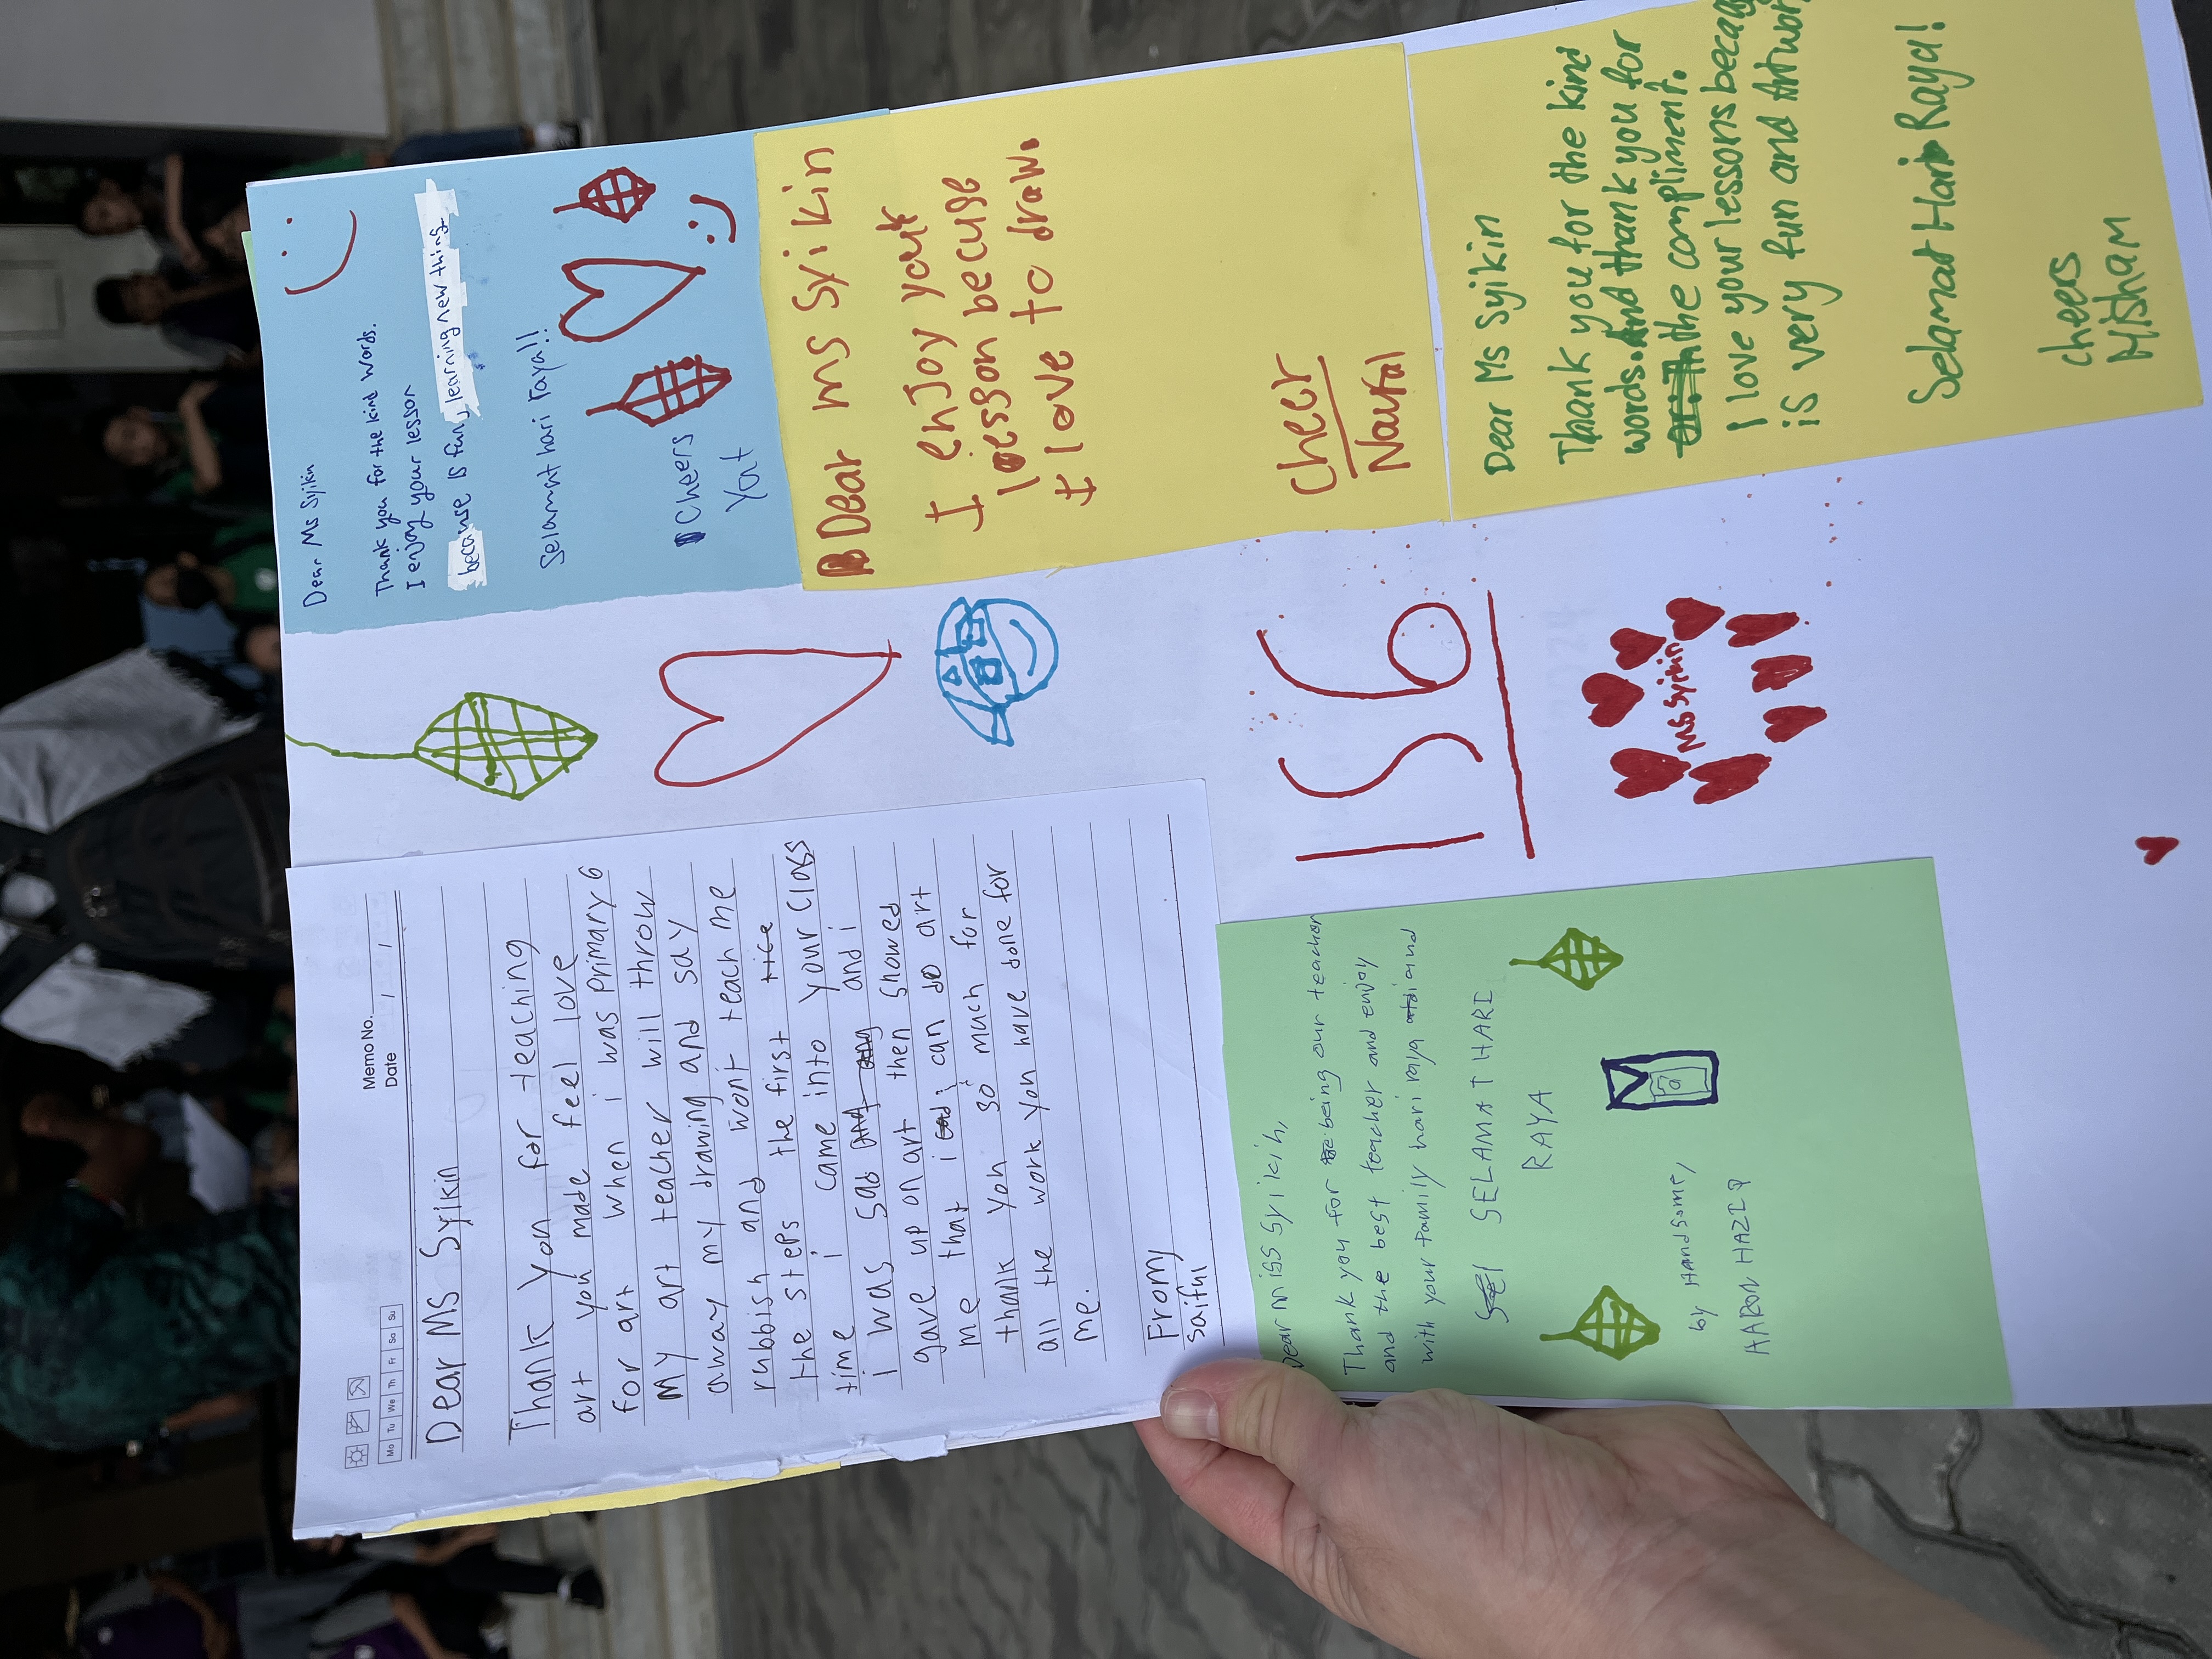 Memo No.
Date / /
Mo Tu We Th Fr Sa Su
Dear Ms Syikin
Thank you for teaching
art you made feel love
for art when i was primary 6
My art teacher will throw
away my drawing and say
rubbish and wont teach me
the steps the first tice
time i came into your class
i was sad and i
gave up on art then showed
me that i can do art
thank you so much for
all the work you have done for
me.
From
saiful
Dear Ms Syikin
Thank you for the kind words.
I enjoy your lesson
because is fun, learning new thing
Selamat hari raya!!
Cheers
Yat
:)
Dear ms Syikin
I enJoy your
lesson becuse
I love to draw.
Cheer
Naufal
1S6
Ms Syikin
Dear miss Syikin,
Thank you for being our teacher
and the best teacher and enjoy
with your family hari raya and
SELAMAT HARI
RAYA
by Handsome,
AARON HAZIQ
Dear Ms Syikin
Thank you for the kind
words. And thank you for
the compliment.
I love your lessons
is very fun and
Selamat Hari Raya!
cheers
Misham